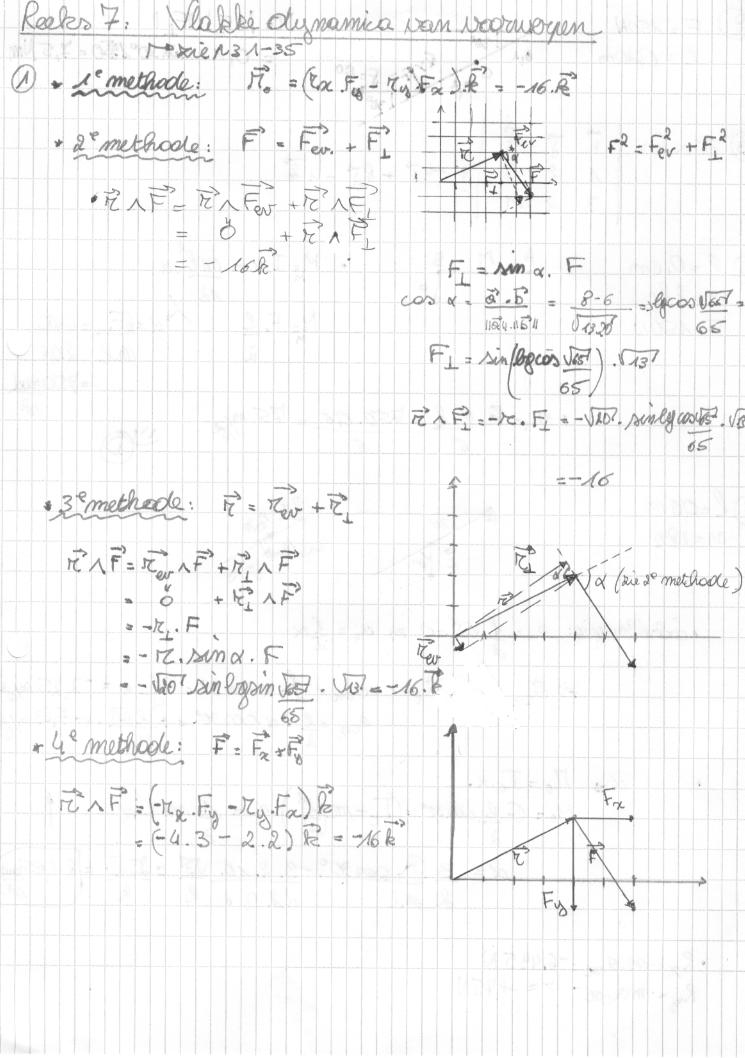 Reeks 7: Vlakke dynamica van voorwerpen
→ zie r 31-35
① * 1e methode: M⃗₀ = (rx.Fy - ry.Fx).k⃗ = -16.k⃗
* 2e methode: F⃗ = F⃗ev. + F⃗⊥
F² = F²ev + F²⊥
r⃗
F⃗ev
α
F⃗
F⃗⊥
• r⃗ ∧ F⃗ = r⃗ ∧ F⃗ev + r⃗ ∧ F⃗⊥
= 0⃗ + r⃗ ∧ F⃗⊥
= -16k⃗
F⊥ = sin α. F
cos α = a⃗.b⃗ / ||a⃗||.||b⃗|| = 8-6 / √13.20 => bgcos √65 / 65 =
F⊥ = sin(bgcos √65 / 65).√13
r⃗ ∧ F⃗⊥ = -r.F⊥ = -√20. sin bgcos √65 / 65 . √13
= -16
* 3e methode: r⃗ = r⃗ev + r⃗⊥
r⃗ ∧ F⃗ = r⃗ev ∧ F⃗ + r⃗⊥ ∧ F⃗
= 0⃗ + r⃗⊥ ∧ F⃗
= -r⊥. F
= -r. sin α. F
= -√20 sin bgsin √65 / 65 . √13 = -16.k⃗
r⃗⊥
α
r⃗
α (zie 2e methode)
r⃗ev
* 4e methode: F⃗ = F⃗x + F⃗y
r⃗ ∧ F⃗ = (-rx.Fy - ry.Fx) k⃗
= (-4.3 - 2.2) k⃗ = -16k⃗
Fx
r⃗
F⃗
Fy